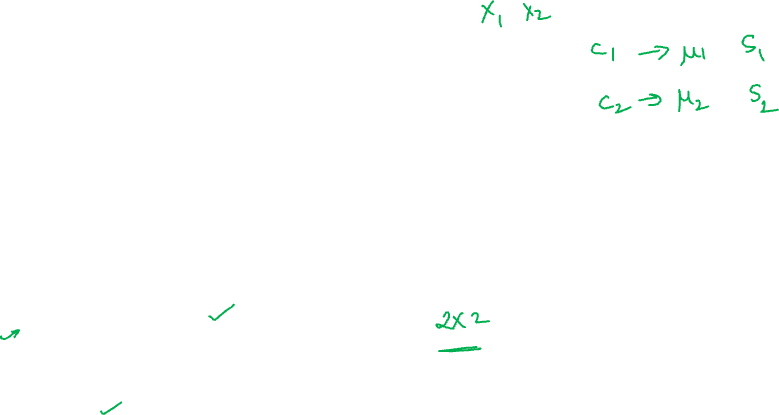 x₁ x₂
c₁ → μ₁ S₁
c₂ → μ₂ S₂
2x2